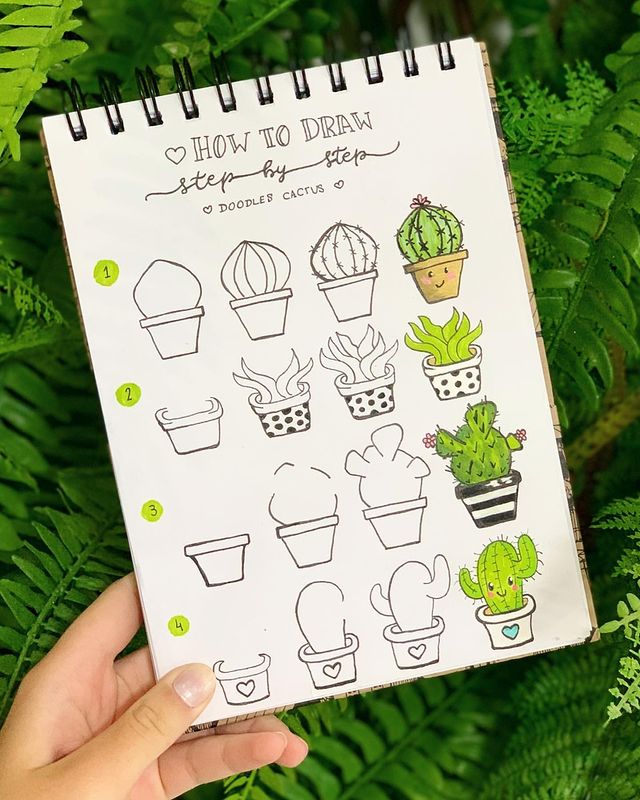 HOW TO DRAW
step by step
DOODLES CACTUS
1
2
3
4